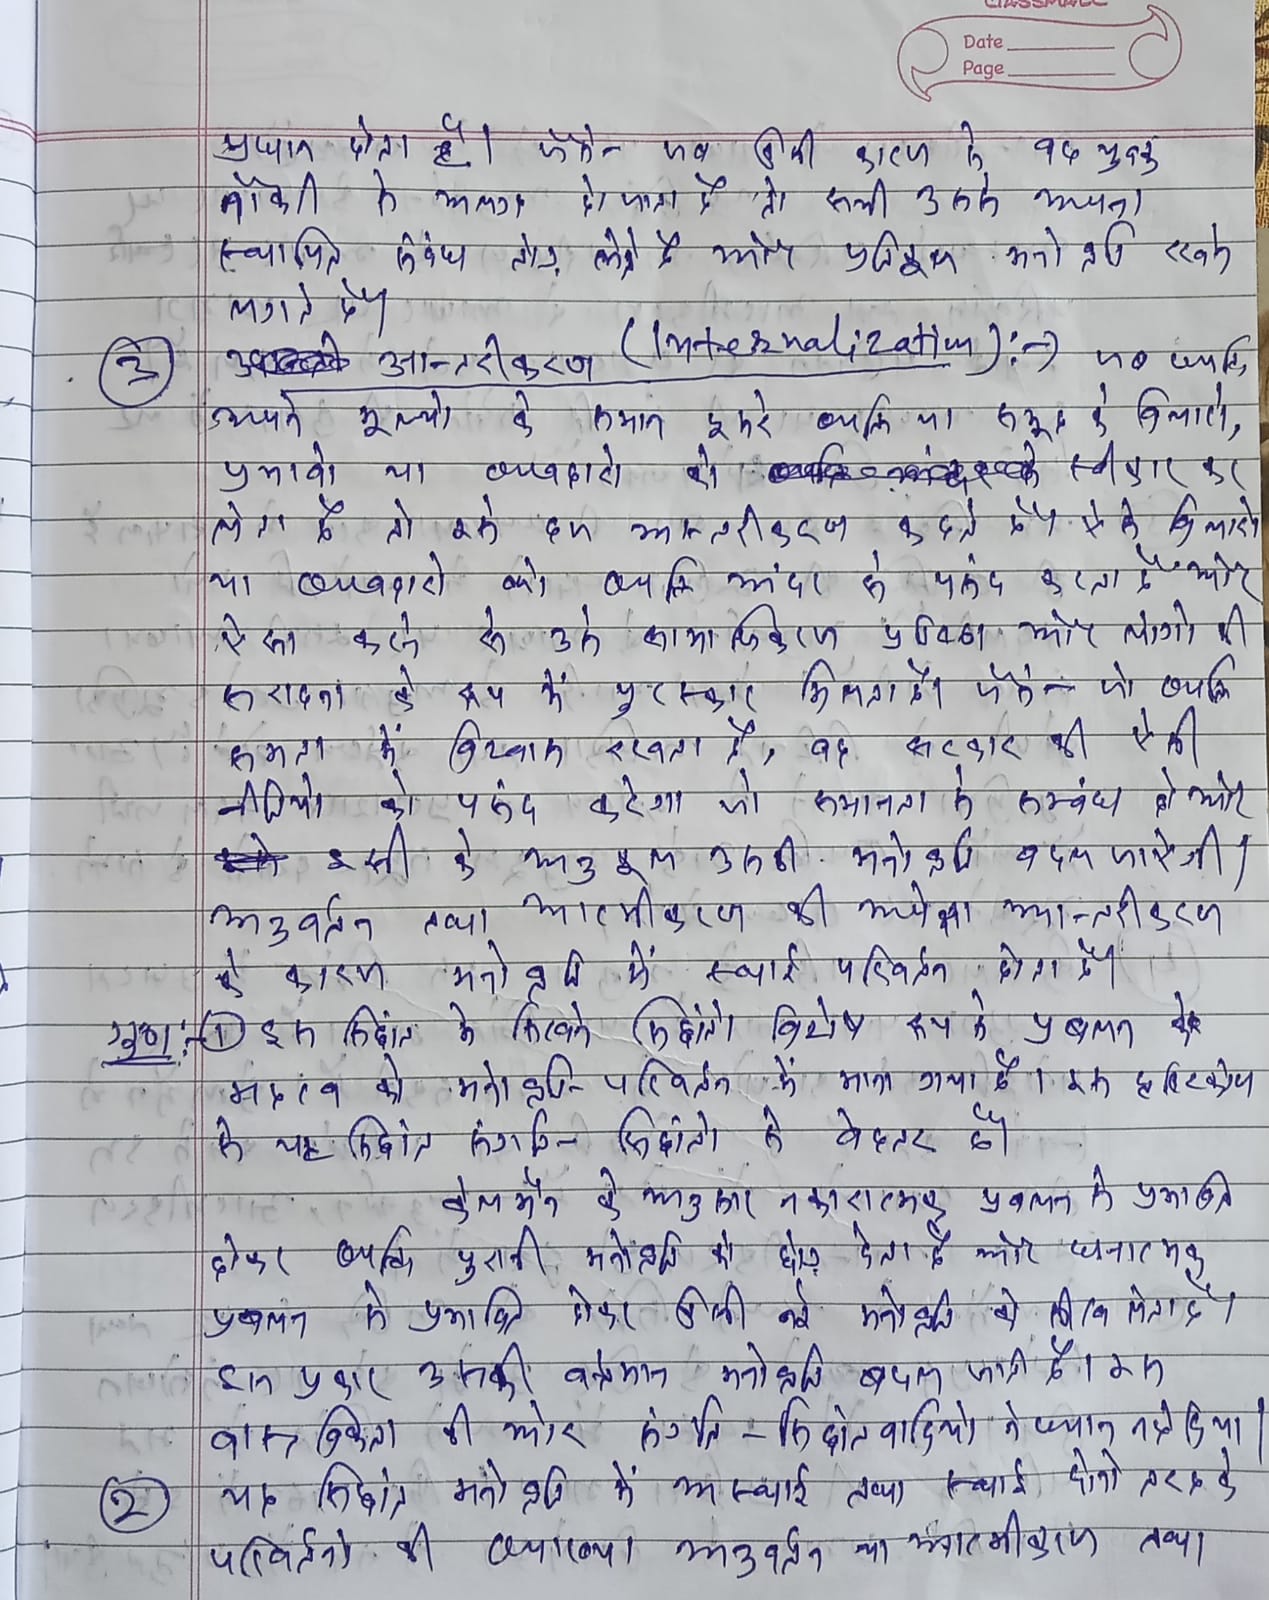 classmate
Date
Page
प्रधान होता है। जैसे- जब किसी कारण से वह युवक
नौकरी से अलग हो जाता है तो सभी उससे अपना
स्थापित संबंध तोड़ लेते है और प्रतिकूल मनोवृत्ति रखने
लगते है।
③ आन्तरीकरण (Internalization) :→ जब व्यक्ति
अपने मूल्यों के समान दूसरे व्यक्ति या समूह के विचारो,
प्रभावो या व्यवहारो को स्वीकार कर
लेता है तो इसे हम आन्तरीकरण कहते है। ऐसे विचारो
या व्यवहारो को व्यक्ति अंदर से पसंद करता है और
ऐसा करने से उसे सामाजिक प्रतिष्ठा और लोगो की
सराहना के रूप में पुरस्कार मिलता है। जैसे- जो व्यक्ति
समता में विश्वास रखता है, वह सरकार की ऐसी
नीतियो को पसंद करेगा जो समानता से सम्बंध हो और
इसी के अनुकूल उसकी मनोवृत्ति बदल जाऐगी।
अनुवर्तन तथा आत्मीकरण की अपेक्षा आन्तरीकरण
के कारण मनोवृत्ति में स्थाई परिवर्तन होता है।
गुण :- ① इस सिद्धांत मे सिखने सिद्धांतो विशेष रूप से प्रबलन के
महत्व को मनोवृत्ति-परिवर्तन में माना गया है। इस दृष्टिकोण
से यह सिद्धांत संगति-सिद्धांतो से बेहतर है।
केलमैन के अनुसार नकारात्मक प्रबलन से प्रभावित
होकर व्यक्ति पुरानी मनोवृत्ति को छोड़ देता है और धनात्मक
प्रबलन से प्रभावित होकर किसी नई मनोवृत्ति को सीख लेता है।
इस प्रकार उसकी वर्तमान मनोवृत्ति बदल जाती है। इस
वास्तविकता की ओर संगति-सिद्धांतवादियो ने ध्यान नहीं दिया।
② यह सिद्धांत मनोवृत्ति में अस्थाई तथा स्थाई दोनो तरह के
परिवर्तनो की व्याख्या अनुवर्तन या आत्मीकरण तथा